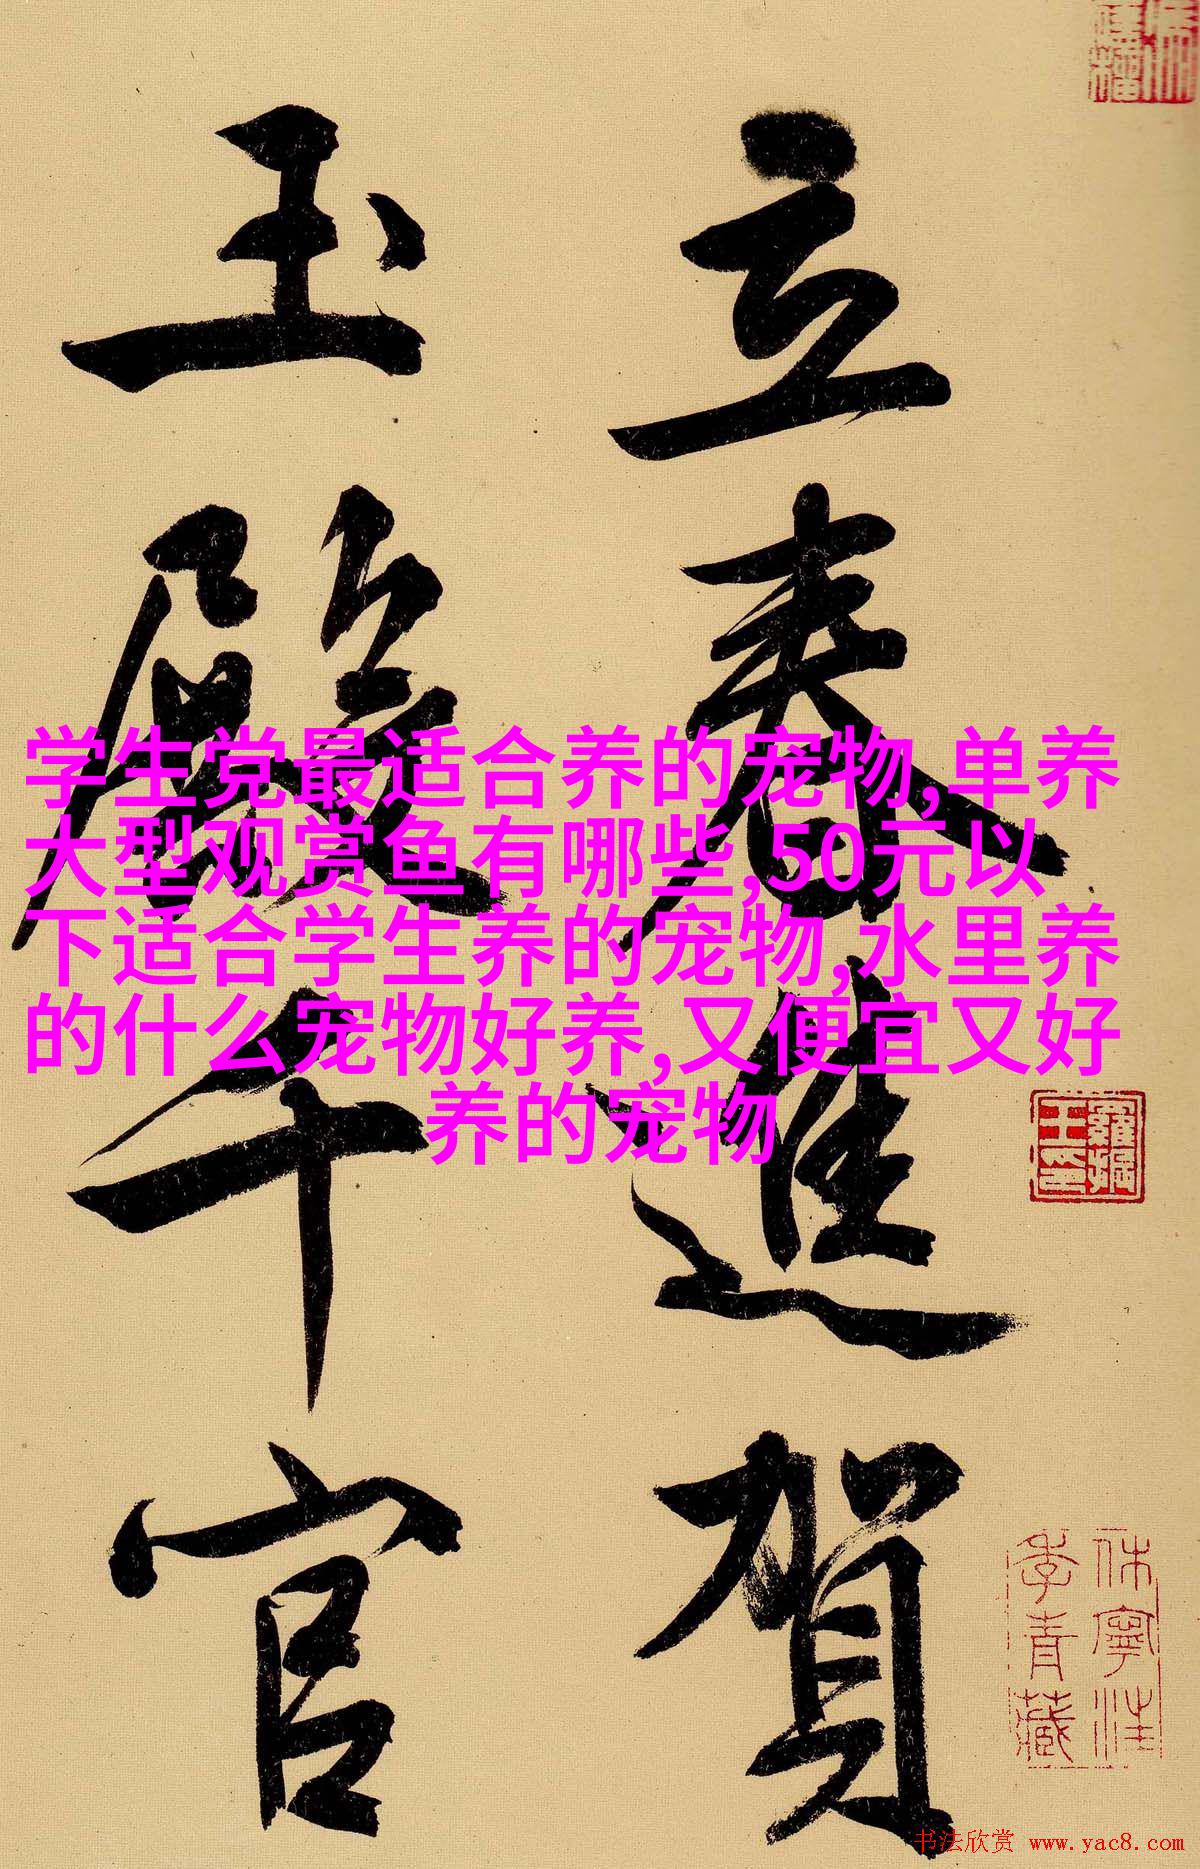 立春進賀
玉殿千官
学生党最适合养的宠物,单养
大型观赏鱼有哪些,50元以
下适合学生养的宠物,水里养
的什么宠物好养,又便宜又好
养的宠物
休寧汪
季青藏
书法欣赏 www.yac8.com